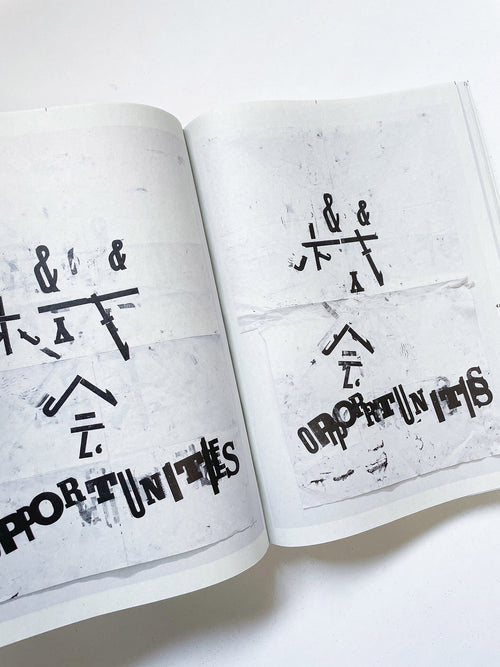 機
会
OPPORTUNITIES
機
会
OPPORTUNITIS